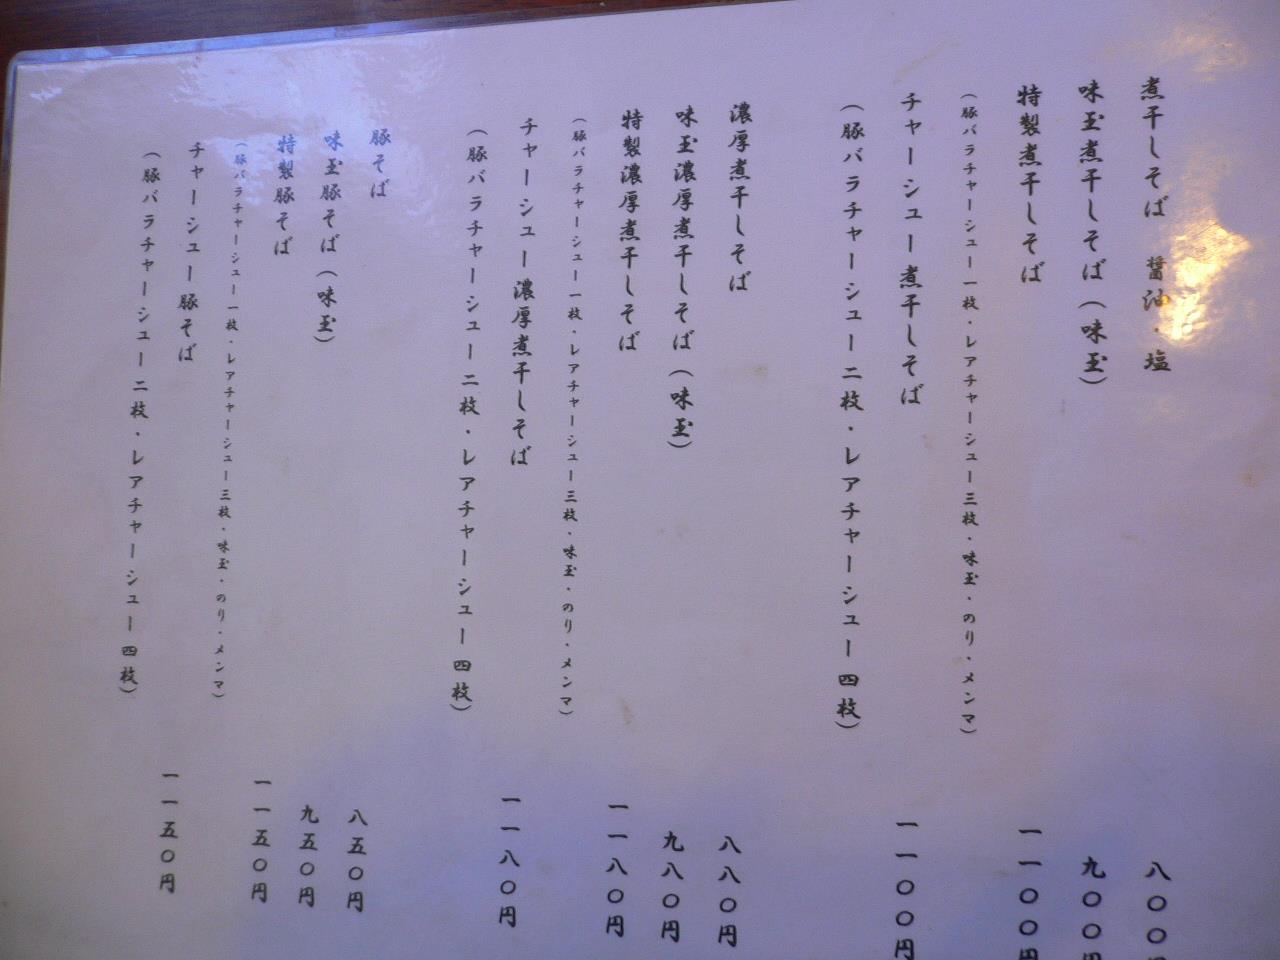 煮干しそば 醤油・塩 八〇〇円
味玉煮干しそば(味玉) 九〇〇円
特製煮干しそば 一一〇〇円
(豚バラチャーシュー一枚・レアチャーシュー三枚・味玉・のり・メンマ)
チャーシュー煮干しそば 一一〇〇円
(豚バラチャーシュー二枚・レアチャーシュー四枚)
濃厚煮干しそば 八八〇円
味玉濃厚煮干しそば(味玉) 九八〇円
特製濃厚煮干しそば 一一八〇円
(豚バラチャーシュー一枚・レアチャーシュー三枚・味玉・のり・メンマ)
チャーシュー濃厚煮干しそば 一一八〇円
(豚バラチャーシュー二枚・レアチャーシュー四枚)
豚そば 八五〇円
味玉豚そば(味玉) 九五〇円
特製豚そば 一一五〇円
(豚バラチャーシュー一枚・レアチャーシュー三枚・味玉・のり・メンマ)
チャーシュー豚そば 一一五〇円
(豚バラチャーシュー二枚・レアチャーシュー四枚)